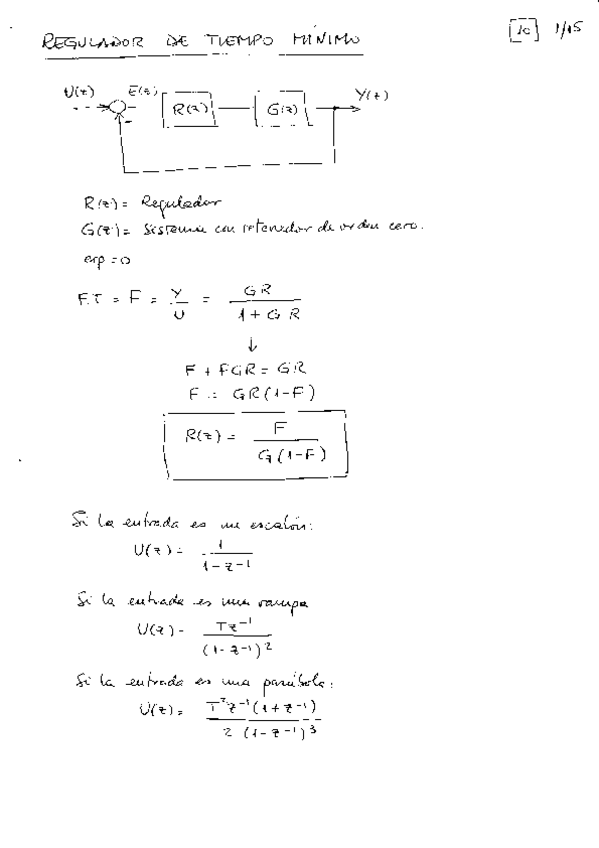 REGULADOR DE TIEMPO MÍNIMO
1/15
U(z) E(z) R(z) G(z) Y(z)
R(z) = Regulador
G(z) = Sistema con retenedor de orden cero.
erp = 0
F.T = F = Y/U = GR/(1 + GR)
↓
F + FGR = GR
F = GR(1-F)
R(z) = F/(G(1-F))
Si la entrada es un escalón:
U(z) = 1/(1-z⁻¹)
Si la entrada es una rampa
U(z) = Tz⁻¹/(1-z⁻¹)²
Si la entrada es una parábola:
U(z) = T²z⁻¹(1+z⁻¹)/(2(1-z⁻¹)³)